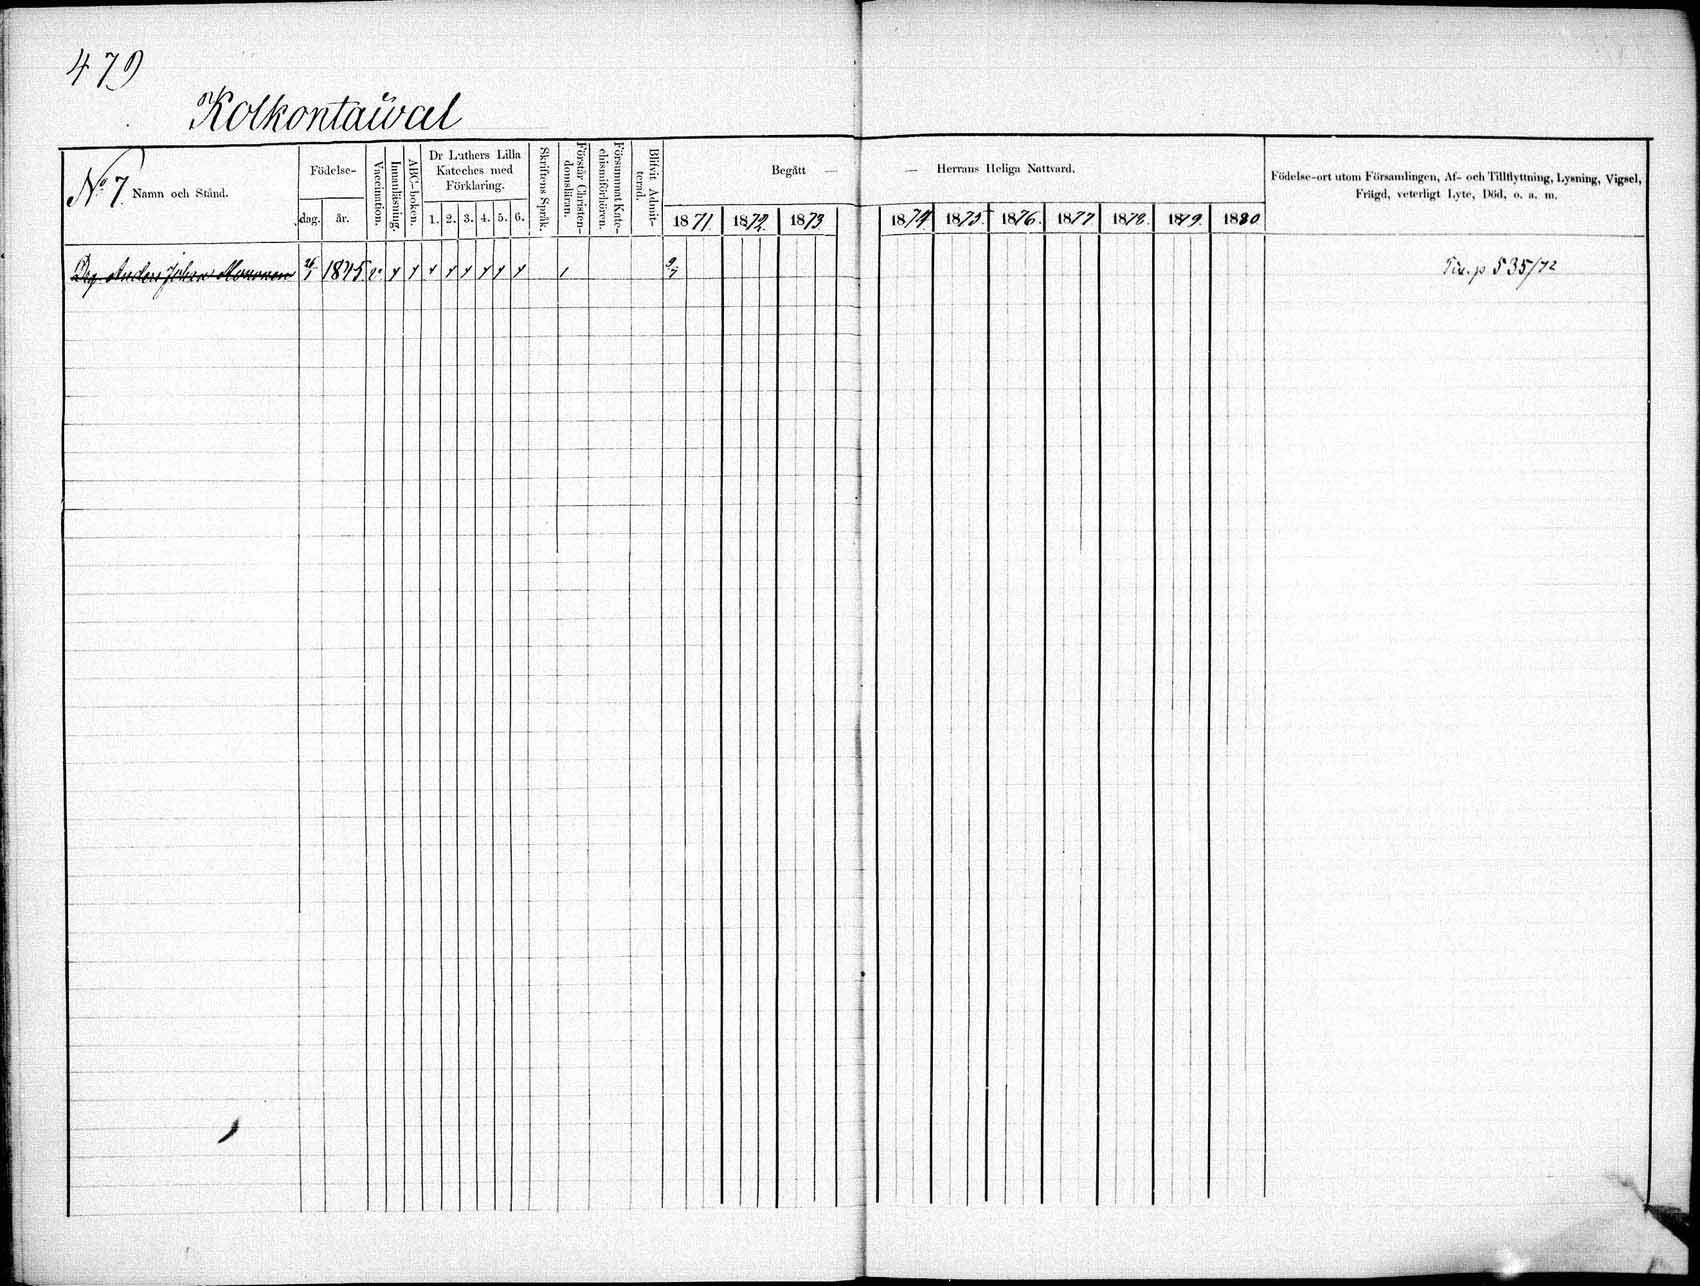 479
Kolkontaival
No 7. Namn och Stånd.
Födelse-
dag. år.
Vaccination.
Innanläsning.
ABC-boken.
Dr Luthers Lilla
Kateches med
Förklaring.
1. 2. 3. 4. 5. 6.
Skriftens Språk.
Förstår Christen-
domsläran.
Försummat Kate-
chismiförhören.
Blifvit Admit-
terad.
Begått — — Herrans Heliga Nattvard.
1871. 1872. 1873. 1874. 1875 1876. 1877 1878. 1879. 1880
Födelse-ort utom Församlingen, Af- och Tillflyttning, Lysning, Vigsel,
Frägd, veterligt Lyte, Död, o. a. m.
Drg Anders Johan 1845 v. p 535/72